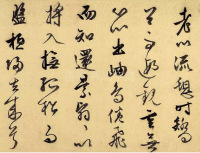 老以流憩時矯
首而遐觀雲無
心以出岫鳥倦飛
而知還景翳翳以
將入撫孤松而
盤桓歸去來兮